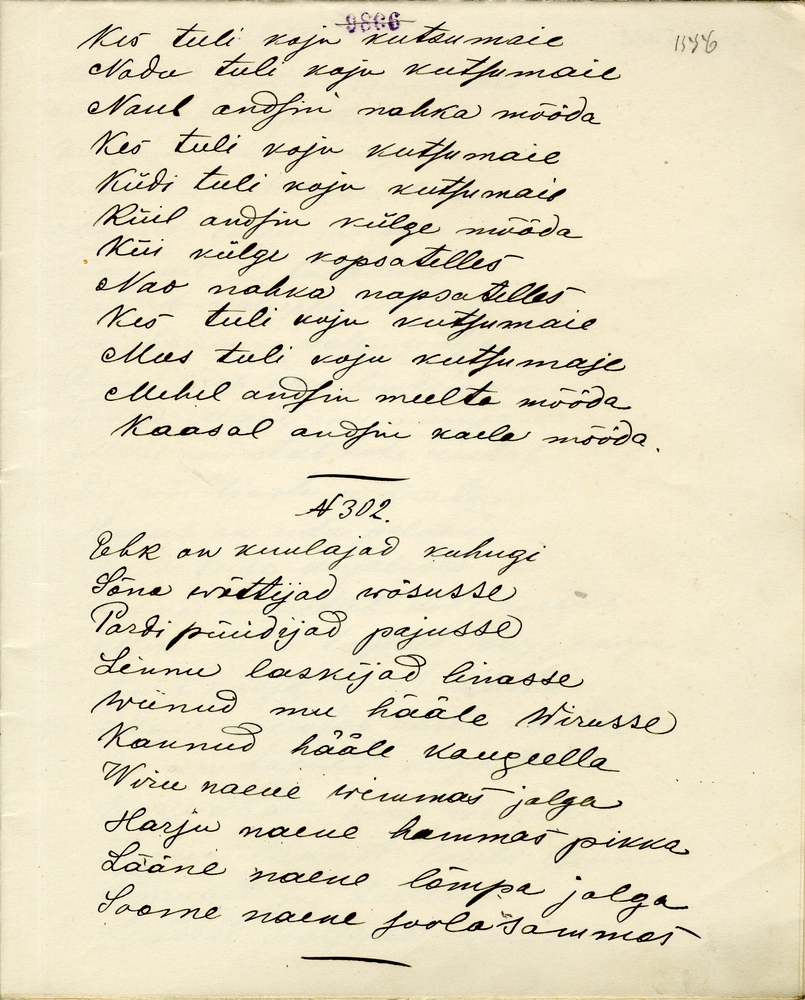 9866
1556
Kes tuli koju kutsumaie
Nadu tuli koju kutsumaie
Naul andsin nahka mööda
Kes tuli koju kutsumaie
Küdi tuli koju kutsumaie
Küil andsin külge mööda
Küi külge kopsatelles
Nao nahka napsatelles
Kes tuli koju kutsumaie
Mees tuli koju kutsumaje
Mehel andsin meelta mööda
Kaasal andsin kaela mööda.
N 302.
Ehk on kuulajad kuhugi
Sõna wõttijad wõsusse
Pardi püüdijad pajusse
Linnu laskijad linasse
Wiinud mu hääle Wirusse
Kannud hääle kaugeella
Wiru naene wimmas jalga
Harju naene hammas pikka
Lääne naene lõmpa jalga
Soome naene soola sammas